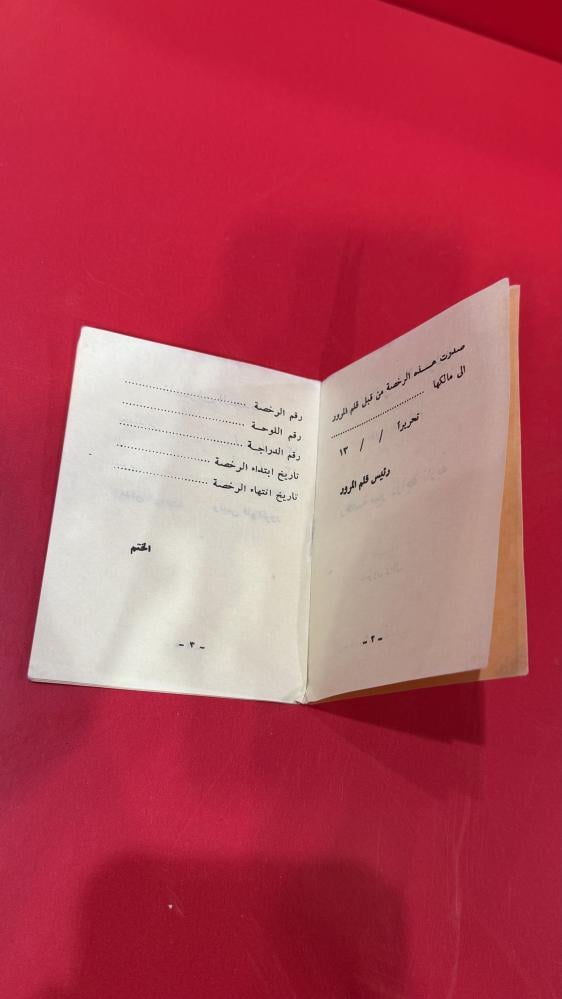 صدرت هذه الرخصة من قبل قلم المرور
الى مالكها ..............................
تحريراً / / ١٣
رئيس قلم المرور
- ٢ -
رقم الرخصة ..............................
رقم اللوحة ..............................
رقم الدراجة ..............................
تاريخ ابتداء الرخصة ........................
تاريخ انتهاء الرخصة ........................
الختم
- ٣ -